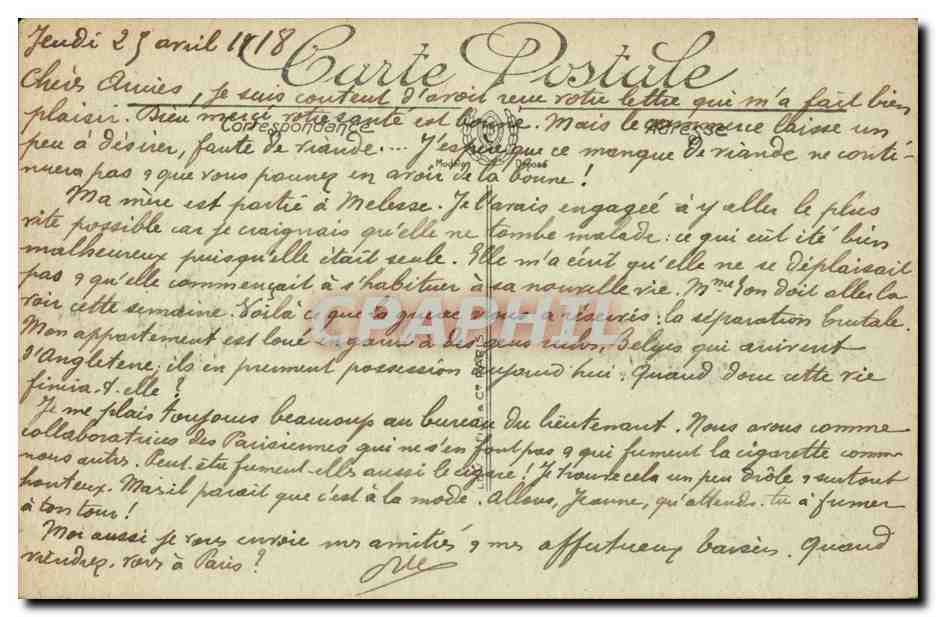 Jeudi 25 avril 1918
Carte Postale
Chères Amies, Je suis content d'avoir reçu votre lettre qui m'a fait bien
plaisir. Dieu merci votre santé est bonne. Mais le commerce laisse un
Correspondance
Adresse
peu à désirer, faute de viande.... J'espère que ce manque de viande ne conti-
Modèle Déposé
nuera pas & que vous pourrez en avoir de la bonne !
Ma mère est partie à Melesse. Je l'avais engagée à y aller le plus
vite possible car je craignais qu'elle ne tombe malade : ce qui eût été bien
malheureux puisqu'elle était seule. Elle m'a écrit qu'elle ne se déplaisait
pas & qu'elle commençait à s'habituer à sa nouvelle vie. Mme doit aller la
voir cette semaine. Voilà ce que la guerre vous a réservés : la séparation brutale.
CPAPHIL
Mon appartement est loué à des gens Belges qui arrivent
d'Angleterre ; ils en prennent possession aujourd'hui. Quand donc cette vie
finira-t-elle ?
Je me plais toujours beaucoup au bureau du lieutenant. Nous avons comme
collaboratrices des Parisiennes qui ne s'en font pas & qui fument la cigarette comme
nous autres. Peut-être fument-elles aussi le cigare ! Je trouve cela un peu drôle & surtout
honteux. Mais il parait que c'est à la mode. Allons, Jeanne, qu'attends-tu à fumer
à ton tour !
Moi aussi je vous envoie mes amitiés & mes affectueux baisers. Quand
viendrez-vous à Paris ?